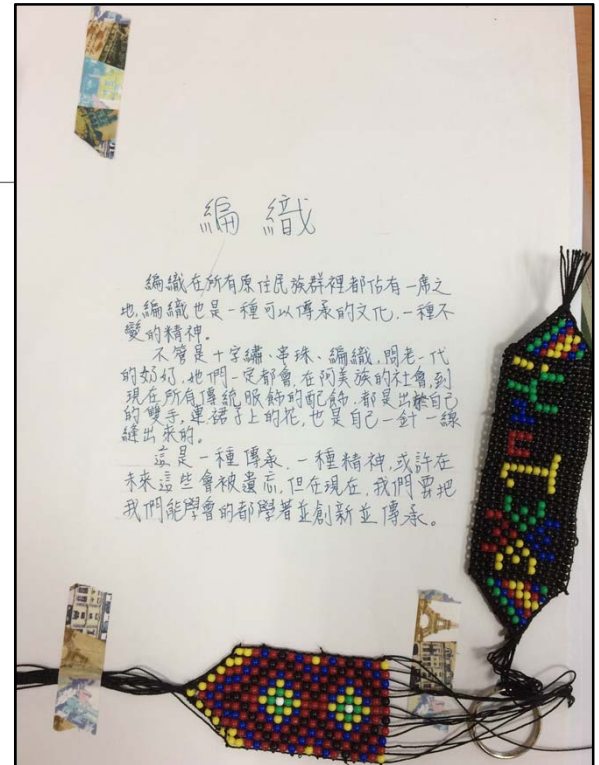 編織
編織在所有原住民族群裡都佔有一席之
地,編織也是一種可以傳承的文化,一種不
變的精神。
不管是十字繡、串珠、編織,問老一代
的奶奶,她們一定都會,在阿美族的社會,到
現在所有傳統服飾的配飾,都是出於自己
的雙手,連裙子上的花,也是自己一針一線
縫出來的。
這是一種傳承,一種精神,或許在
未來這些會被遺忘,但在現在,我們要把
我們能學會的都學著並創新並傳承。